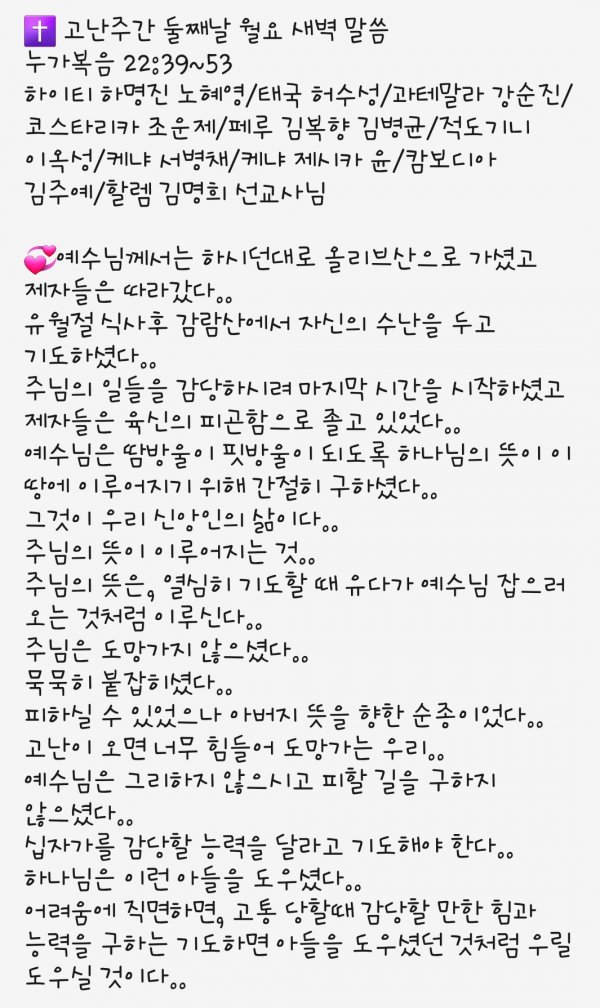 ✝️ 고난주간 둘째날 월요 새벽 말씀
누가복음 22:39~53
하이티 하명진 노혜영/태국 허수성/과테말라 강순진/
코스타리카 조운제/페루 김복향 김병균/적도기니
이옥성/케냐 서병채/케냐 제시카 윤/캄보디아
김주예/할렘 김명희 선교사님
💞예수님께서는 하시던대로 올리브산으로 가셨고
제자들은 따라갔다..
유월절 식사후 감람산에서 자신의 수난을 두고
기도하셨다..
주님의 일들을 감당하시려 마지막 시간을 시작하셨고
제자들은 육신의 피곤함으로 졸고 있었다..
예수님은 땀방울이 핏방울이 되도록 하나님의 뜻이 이
땅에 이루어지기 위해 간절히 구하셨다..
그것이 우리 신앙인의 삶이다..
주님의 뜻이 이루어지는 것..
주님의 뜻은, 열심히 기도할 때 유다가 예수님 잡으러
오는 것처럼 이루신다..
주님은 도망가지 않으셨다..
묵묵히 붙잡히셨다..
피하실 수 있었으나 아버지 뜻을 향한 순종이었다..
고난이 오면 너무 힘들어 도망가는 우리..
예수님은 그리하지 않으시고 피할 길을 구하지
않으셨다..
십자가를 감당할 능력을 달라고 기도해야 한다..
하나님은 이런 아들을 도우셨다..
어려움에 직면하면, 고통 당할때 감당할 만한 힘과
능력을 구하는 기도하면 아들을 도우셨던 것처럼 우릴
도우실 것이다..